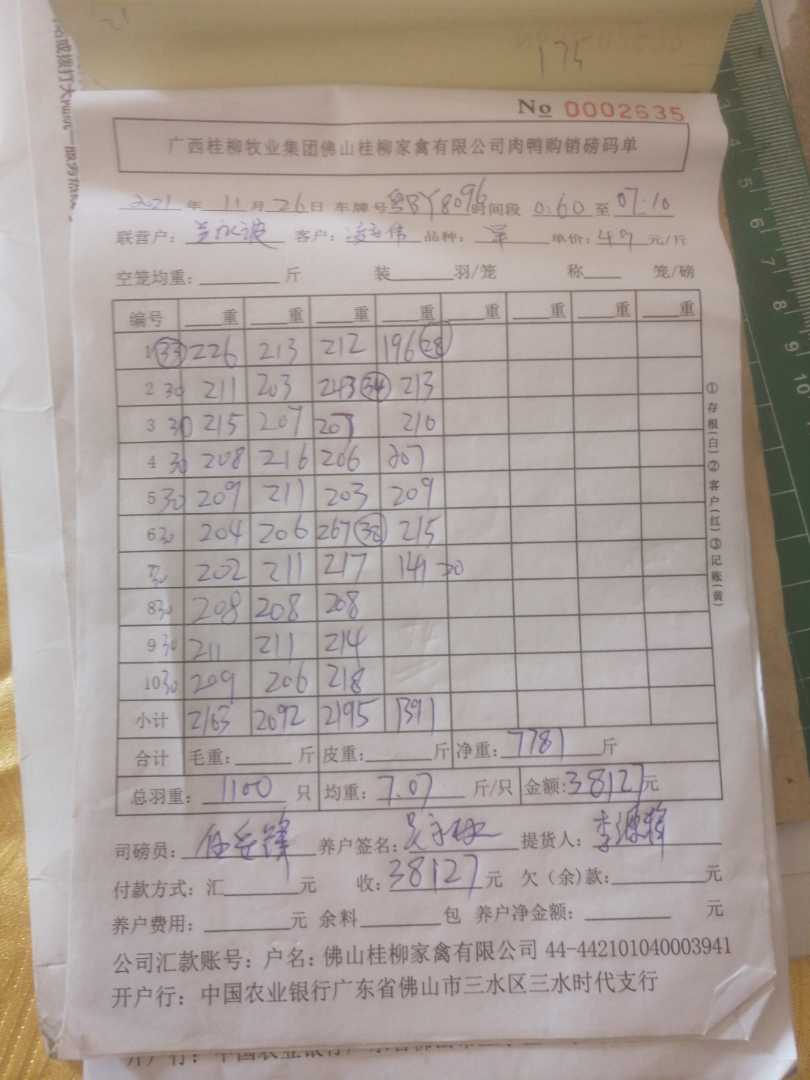 175
No 0002635
广西桂柳牧业集团佛山桂柳家禽有限公司肉鸭购销磅码单
2021年 11月26日 车牌号粤BY8096时间段 0:60 至 07:10
联营户： 客户： 品种： 单价：4.9 元/斤
空笼均重： 斤 装 羽/笼 称 笼/磅
编号 重 重 重 重 重 重 重 重
1 33 226 213 212 196 28
2 30 211 203 243 34 213
3 30 215 207 207 210
4 30 208 216 206 207
5 30 209 211 203 209
6 30 204 206 267 38 215
7 30 202 211 217 141 20
8 30 208 208 208
9 30 211 211 214
10 30 209 206 218
小计 2163 2092 2195 1391
合计 毛重： 斤 皮重： 斤 净重：7781 斤
总羽重：1100 只 均重：7.07 斤/只 金额：38127元
司磅员： 养户签名： 提货人：
付款方式：汇 元 收：38127 元 欠（余）款： 元
养户费用： 元 余料 包 养户净金额： 元
公司汇款账号：户名：佛山桂柳家禽有限公司 44-442101040003941
开户行：中国农业银行广东省佛山市三水区三水时代支行
①存根（白）②客户（红）③记账（黄）